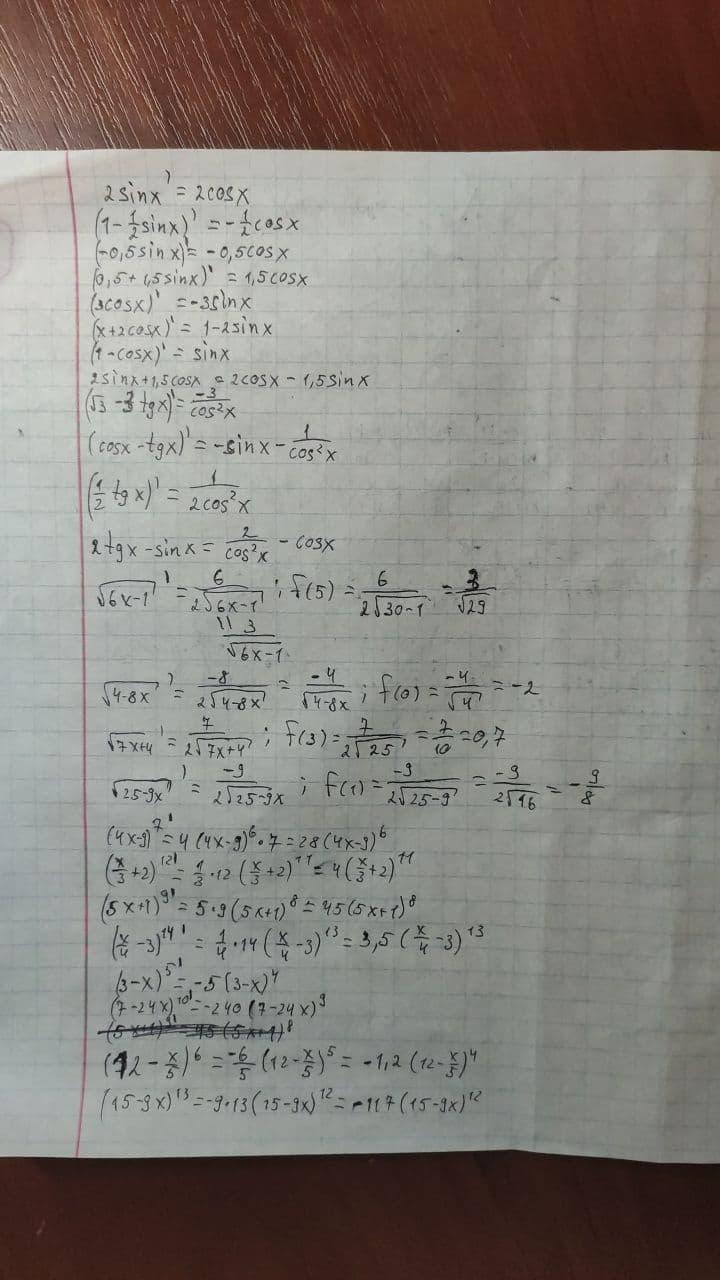 2sinx' = 2cosx
(1-1/2sinx)' = -1/2cosx
(-0,5sinx)' = -0,5cosx
(0,5+1,5sinx)' = 1,5cosx
(3cosx)' = -3sinx
(x+2cosx)' = 1-2sinx
(1-cosx)' = sinx
2sinx+1,5cosx = 2cosx-1,5sinx
(√3-3tgx)' = -3/cos²x
(cosx-tgx)' = -sinx-1/cos²x
(1/2tgx)' = 1/2cos²x
2tgx-sinx = 2/cos²x - cosx
√6x-1' = 6/2√6x-1; f(5) = 6/2√30-1 = 3/√29
= 3/√6x-1
√4-8x' = -8/2√4-8x = -4/√4-8x; f(0) = -4/√4 = -2
√7x+4' = 7/2√7x+4; f(3) = 7/2√25 = 7/10 = 0,7
√25-9x' = -9/2√25-9x; f(1) = -9/2√25-9 = -9/2√16 = -9/8
(4x-9)⁷' = 4(4x-9)⁶·7 = 28(4x-9)⁶
(x/3+2)¹²' = 1/3·12(x/3+2)¹¹ = 4(x/3+2)¹¹
(5x+1)⁹' = 5·9(5x+1)⁸ = 45(5x+1)⁸
(x/4-3)¹⁴' = 1/4·14(x/4-3)¹³ = 3,5(x/4-3)¹³
(3-x)⁵' = -5(3-x)⁴
(7-24x)¹⁰' = -240(7-24x)⁹
(5x+1)⁹' = 45(5x+1)⁸
(12-x/5)⁶ = -6/5(12-x/5)⁵ = -1,2(12-x/5)⁴
(15-9x)¹³ = -9·13(15-9x)¹² = -117(15-9x)¹²